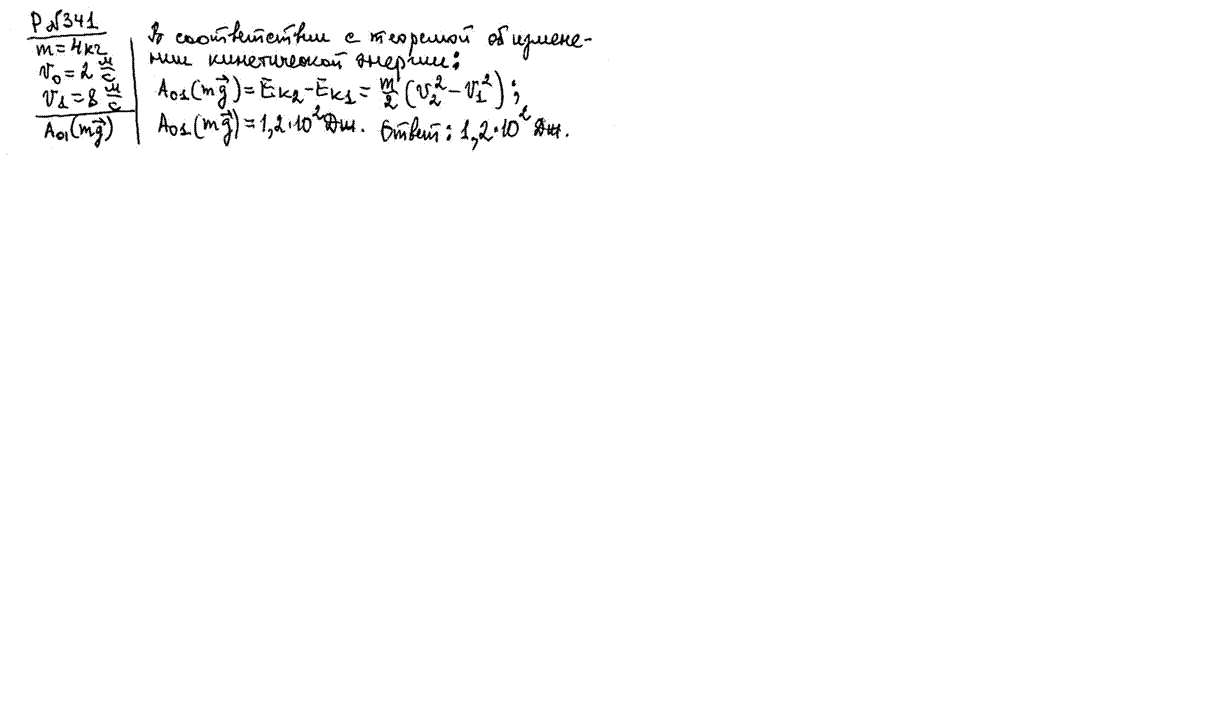 Р №341
m = 4 кг
v₀ = 2 м/с
v₁ = 8 м/с
A₀₁(mg⃗)
В соответствии с теоремой об измене-
нии кинетической энергии:
A₀₁(mg⃗) = Eк₂ - Eк₁ = m/2 (v₂² - v₁²);
A₀₁(mg⃗) = 1,2·10² Дж. Ответ: 1,2·10² Дж.